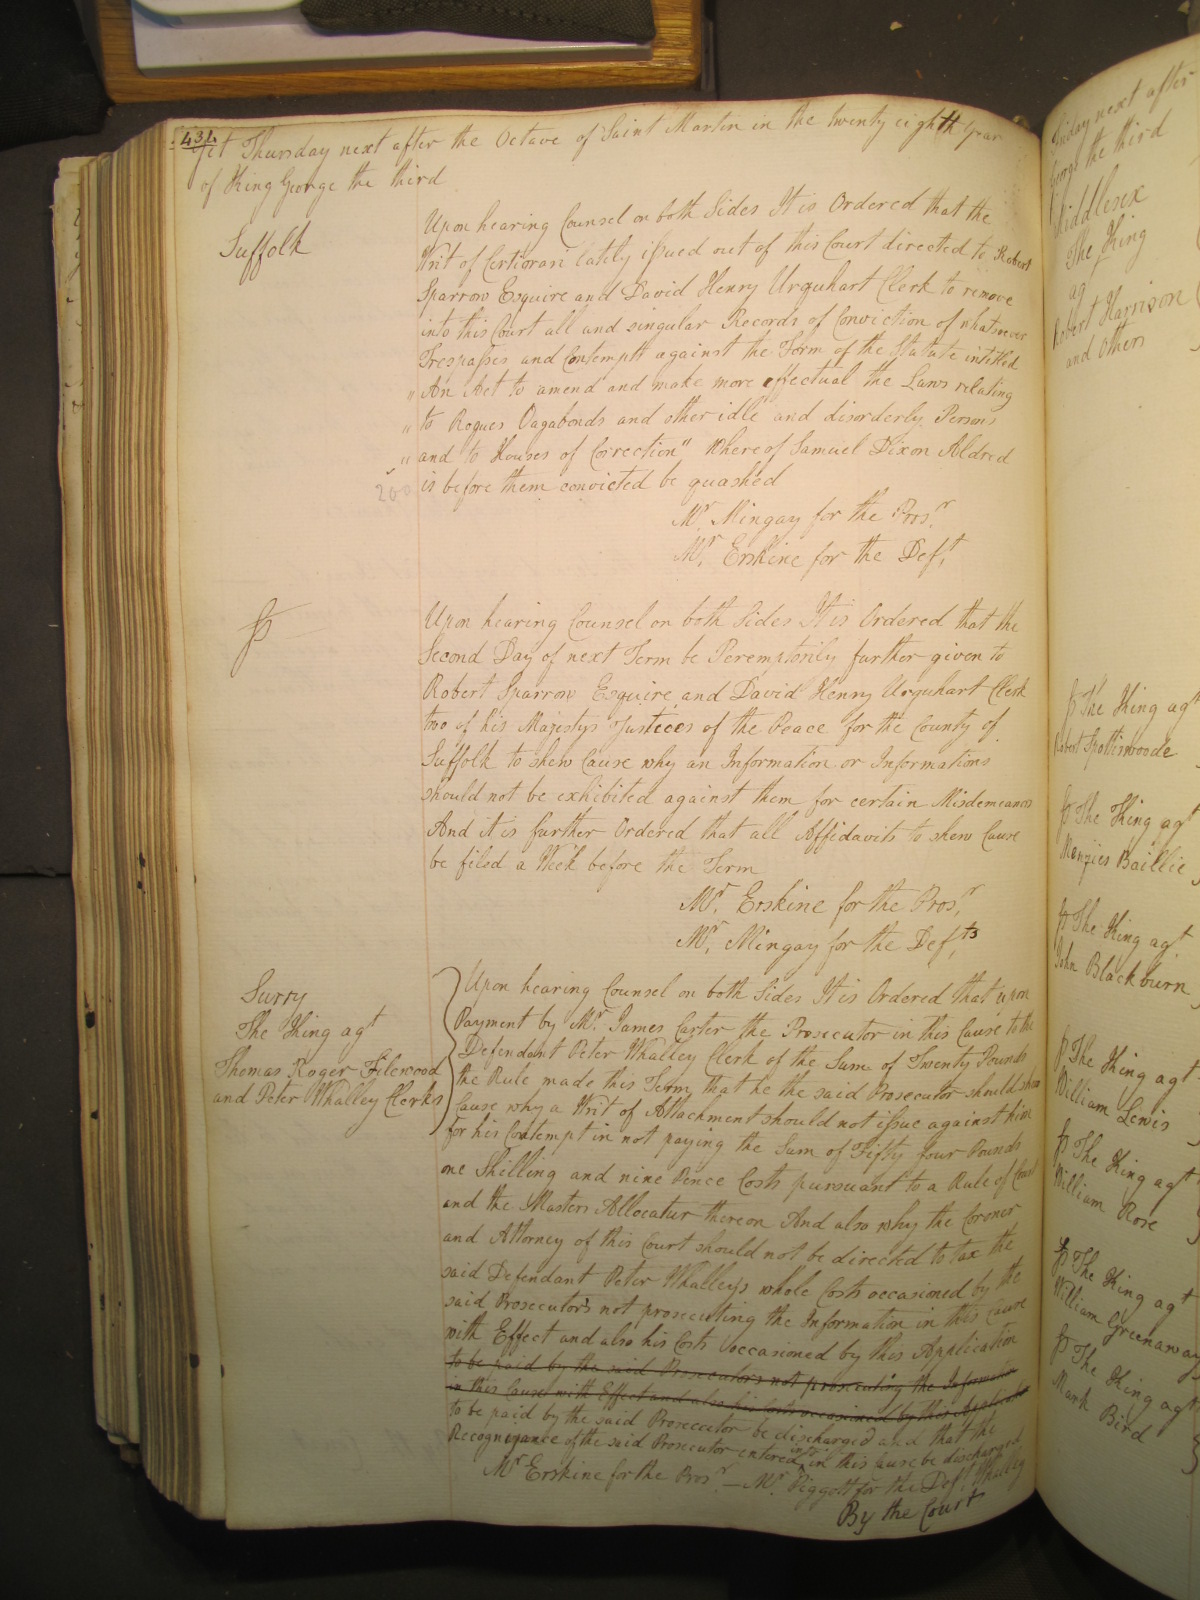 434
Yet Thursday next after the Octave of Saint Martin in the twenty eighth Year
of King George the third
Suffolk
Upon hearing Counsel on both Sides It is Ordered that the
Writ of Certiorari lately issued out of this Court directed to Robert
Sparrow Esquire and David Henry Urquhart Clerk to remove
into this Court all and singular Records of Conviction of whatsoever
Trespasses and Contempts against the Form of the Statute intitled
" An Act to amend and make more effectual the Laws relating
" to Rogues Vagabonds and other idle and disorderly Persons
" and to Houses of Correction" Whereof Samuel Dixon Aldred
is before them convicted be quashed
Mr. Mingay for the Prosr.
Mr. Erskine for the Deft.
Upon hearing Counsel on both Sides It is Ordered that the
Second Day of next Term be Peremptorily further given to
Robert Sparrow Esquire and David Henry Urquhart Clerk
two of his Majestys Justices of the Peace for the County of
Suffolk to shew Cause why an Information or Informations
should not be exhibited against them for certain Misdemeanors
And it is further Ordered that all Affidavits to shew Cause
be filed a Week before the Term
Mr. Erskine for the Prosr.
Mr. Mingay for the Defts.
Surry
The King agt
Thomas Roger Filewood
and Peter Whalley Clerks
Upon hearing Counsel on both Sides It is Ordered that upon
Payment by Mr. James Carter the Prosecutor in this Cause to the
Defendant Peter Whalley Clerk of the Sum of Twenty Pounds
the Rule made this Term that he the said Prosecutor should shew
Cause why a Writ of Attachment should not issue against him
for his Contempt in not paying the Sum of Fifty four Pounds
one Shilling and nine Pence Costs pursuant to a Rule of Court
and the Masters Allocatur thereon And also why the Coroner
and Attorney of this Court should not be directed to tax the
said Defendant Peter Whalleys whole Costs occasioned by the
said Prosecutors not prosecuting the Information in this Cause
with Effect and also his Costs occasioned by this Application
to be paid by the said Prosecutors not prosecuting the Information
in this Cause with Effect and also his Costs occasioned by this Application
to be paid by the said Prosecutor be discharged and that the
Recognizance of the said Prosecutor entered into in this Cause be discharged
Mr. Erskine for the Prosr. — Mr. Piggott for the Deft. Whalley
By the Court
Friday next after
George the third
Middlesex
The King
ag
Robert Harrison
and Others
The King agt
Robert Spottiswoode
The King agt
Menzies Baillie
The King agt
John Blackburn
The King agt
William Lewis
The King agt
William Rose
The King agt
William Greenaway
The King agt
Mark Bird